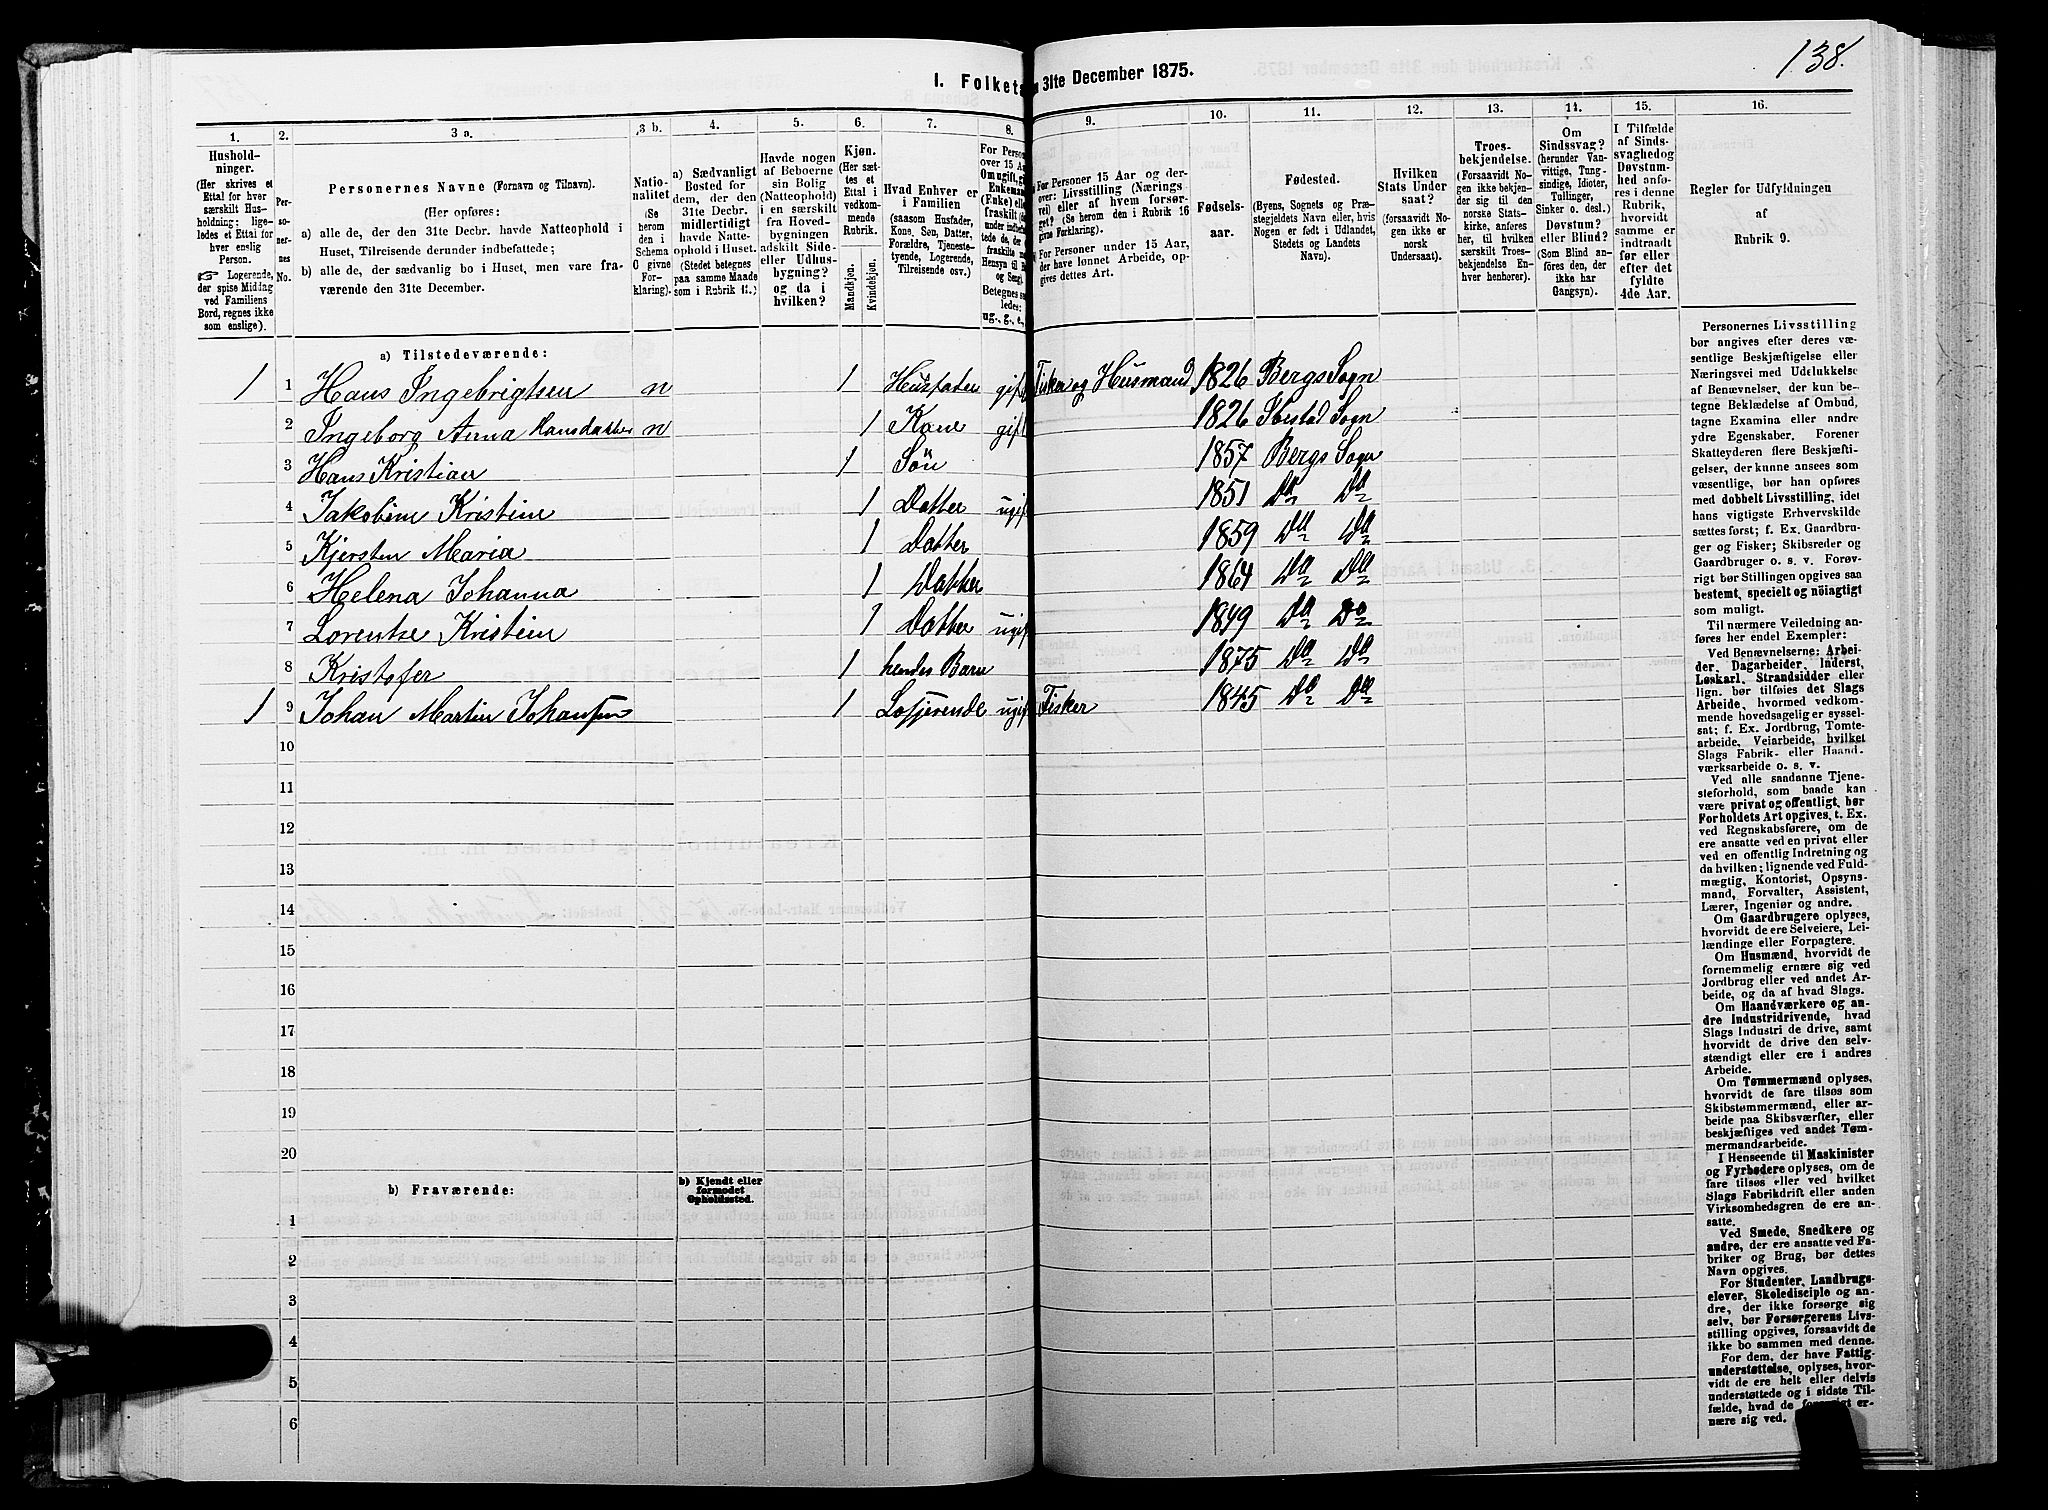 138.
I. Folketa
n 31te December 1875.
1.
2.
3 a.
3 b.
4.
5.
6.
7.
8.
9.
10.
11.
12.
13.
14.
15.
16.
Hushold-
ninger.
(Her skrives et
Ettal for hver
særskilt Hus-
holdning; lige-
ledes et Ettal for
hver enslig
Person.
☞ Logerende,
der spise Middag
ved Familiens
Bord, regnes ikke
som enslige).
Per-
so-
ner-
nes
No.
Personernes Navne (Fornavn og Tilnavn).
(Her opføres:
a) alle de, der den 31te Decbr. havde Natteophold i
Huset, Tilreisende derunder indbefattede;
b) alle de, der sædvanlig bo i Huset, men vare fra-
værende den 31te December.
Natio-
nalitet
(Se
herom
den i
Schema
C givne
For-
klaring).
a) Sædvanligt
Bosted for
dem, der den
31te Decbr.
midlertidigt
havde Natte-
ophold i Huset.
(Stedet betegnes
paa samme Maade
som i Rubrik 11.)
Havde nogen
af Beboerne
sin Bolig
(Natteophold)
i en særskilt
fra Hoved-
bygningen
adskilt Side-
eller Udhus-
bygning?
og da i
hvilken?
Kjøn.
(Her sæt-
tes et
Ettal i
vedkom-
mende
Rubrik.
Mandkjøn.
Kvindekjøn.
Hvad Enhver er
i Familien
(saasom Husfader,
Kone, Søn, Datter,
Forældre, Tjeneste-
tyende, Logerende,
Tilreisende osv.)
For Person
over 15 Aa
Om ugift, gi
Enkeman
(Enke) elle
fraskilt (de
under indbef
tede de, de
fraskilte m
Hensyn til B
og Seng).
Betegnes sa
ledes:
ug., g., e.,
For Personer 15 Aar og der-
over: Livsstilling (Nærings-
vei) eller af hvem forsør-
get? (Se herom den i Rubrik 16
givne Forklaring).
For Personer under 15 Aar,
der have lønnet Arbeide, op-
gives dettes Art.
Fødsels-
aar.
Fødested.
(Byens, Sognets og Præ-
stegjeldets Navn eller, hvis
Nogen er født i Udlandet,
Stedets og Landets
Navn).
Hvilken
Stats Under-
saat?
(forsaavidt No-
gen ikke er
norsk
Undersaat).
Troes-
bekjendelse.
(Forsaavidt No-
gen ikke bekjen-
der sig til den
norske Stats-
kirke, anføres
her, til hvilken
særskilt Troes-
bekjendelse En-
hver henhører).
Om
Sindssvag?
(herunder Van-
vittige, Tung-
sindige, Idioter,
Tullinger,
Sinker o. desl.)
Døvstum?
eller Blind?
(Som Blind an-
føres den, der
ikke har
Gangsyn).
I Tilfælde
af Sinds-
svaghed og
Døvstum-
hed anfø-
res i denne
Rubrik,
hvorvidt
samme er
indtraadt
før eller
efter det
fyldte
4de Aar.
Regler for Udfyldningen
af
Rubrik 9.
a) Tilstedeværende:
1 1 Hans Ingebrigtsen n 1 Husfater gift Fisker og Husmand 1826 Bergs Sogn
2 Ingeborg Anna Hansdatter n 1 Kone gift 1826 Ibestad Sogn
3 Hans Kristian 1 Sön 1857 Bergs Sogn
4 Jakobine Kristine 1 Datter ugif 1851 Do Do
5 Kjersten Maria 1 Datter 1859 Do Do
6 Helena Johanna 1 Datter 1864 Do Do
7 Lorentse Kristin 1 Datter ugif 1849 Do Do
8 Kristofer 1 hendes Barn 1875 Do Do
1 9 Johan Martin Johansen 1 Losjerende ugif Fisker 1845 Do Do
10
11
12
13
14
15
16
17
18
19
20
b) Fraværende:
b) Kjendt eller
formodet
Opholdssted.
1
2
3
4
5
6
Personernes Livsstilling
bør angives efter deres væ-
sentlige Beskjæftigelse eller
Næringsvei med Udelukkelse
af Benævnelser, der kun be-
tegne Beklædelse af Ombud,
tagne Examina eller andre
ydre Egenskaber. Forener
Skatteyderen flere Beskjæfti-
gelser, der kunne ansees som
væsentlige, bør han opføres
med dobbelt Livsstilling, idet
hans vigtigste Erhvervskilde
sættes først; f. Ex. Gaardbru-
ger og Fisker; Skibsreder og
Gaardbruger o. s. v. Forøv-
rigt bør Stillingen opgives saa
bestemt, specielt og nöiagtigt
som muligt.
Til nærmere Veiledning an-
føres her endel Exempler:
Ved Benævnelserne: Arbei-
der, Dagarbeider, Inderst,
Løskarl, Strandsidder eller
lign. bør tilføies det Slags
Arbeide, hvormed vedkom-
mende hovedsagelig er syssel-
sat; f. Ex. Jordbrug, Tomte-
arbeide, Veiarbeide, hvilket
Slags Fabrik- eller Haand-
værksarbeide o. s. v.
Ved alle saadanne Tjene-
steforhold, som baade kan
være privat og offentligt, bør
Forholdets Art opgives, t. Ex.
ved Regnskabsførere, om de
ere ansatte ved en privat eller
ved en offentlig Indretning og
da hvilken; lignende ved Fuld-
mægtig, Kontorist, Opsyns-
mand, Forvalter, Assistent,
Lærer, Ingeniør og andre.
Om Gaardbrugere oplyses,
hvorvidt de ere Selveiere, Lei-
lændinge eller Forpagtere.
Om Husmænd, hvorvidt de
fornemmelig ernære sig ved
Jordbrug eller ved andet Ar-
beide, og da af hvad Slags.
Om Haandværkere og an-
dre Industridrivende, hvad
Slags Industri de drive, samt
hvorvidt de drive den selv-
stændigt eller ere i andres
Arbeide.
Om Tømmermænd oplyses,
hvorvidt de fare tilsøs som
Skibstømmermænd, eller ar-
beide paa Skibsværfter, eller
beskjæftiges ved andet Tøm-
mermandsarbeide.
I Henseende til Maskinister
og Fyrbødere oplyses, om de
fare tilsøs eller ved hvilket
Slags Fabrikdrift eller anden
Virksomhedsgren de ere an-
satte.
Ved Smede, Snedkere og
andre, der ere ansatte ved Fa-
briker og Brug, bør dettes
Navn opgives.
For Studenter, Landbrugs-
elever, Skoledisciple og an-
dre, der ikke forsørge sig
selv, bør Forsørgerens Livs-
stilling opgives, forsaavidt de
ikke bo sammen med denne.
For dem, der have Fattig-
understøttelse, oplyses, hvor-
vidt de ere helt eller delvis
understøttede og i sidste Til-
fælde, hvad de er-
nære sig ved.